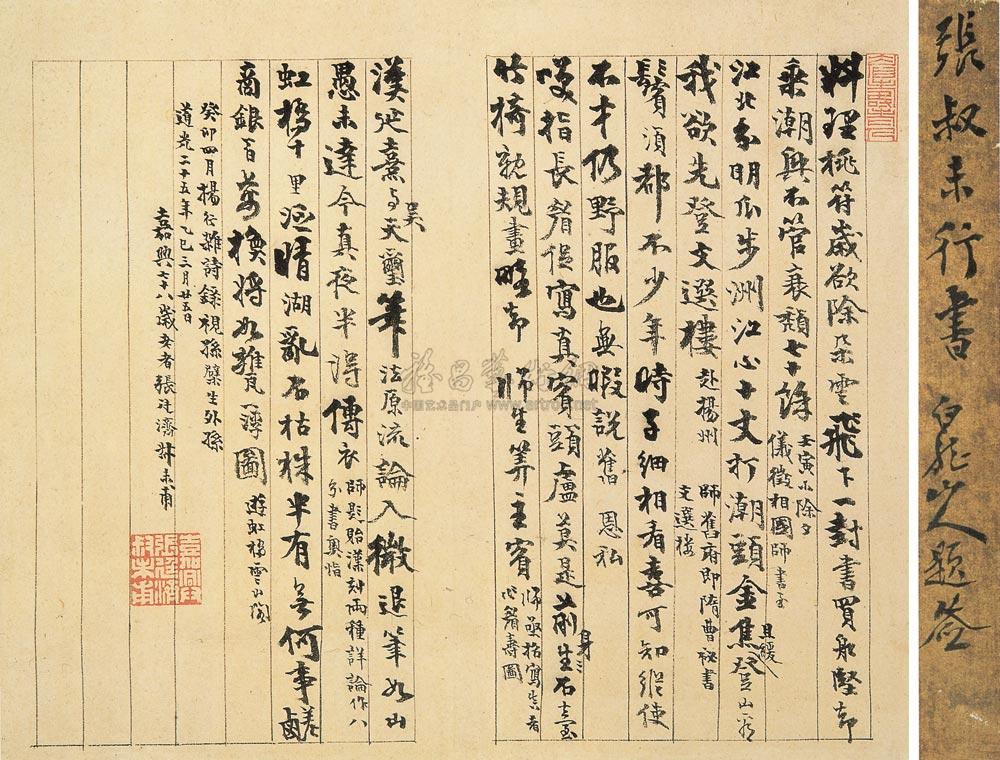 張叔未行書 白龍山人題簽
料理桃符歲欲除朵雲飛下一封書買船堅卻
乘潮興不管衰頹七十餘 壬寅小除夕儀徵相國師書至
江北分明瓜步洲江心十丈打潮頭金焦且緩登山
我欲先登文選樓 赴揚州師舊府即隋曹秘書文選樓
鬢須都不少年時子細相看喜可知縱使
不才仍野服也無暇說舊恩私
嘆指長眉從寫真賓頭盧莫是前身三生石
竹椅就規畫 師生算主賓
漢延熹与吳天璽筆法原流論入微退筆如山
愚未達今真夜半得傳衣 師題貽漢刻兩種詳論作八分書奧恉
虹橋十里泛晴湖亂石枯株半有無何事鹺
商銀百萬換將如雞瓦薄圖 遊虹橋雲山閣
癸卯四月揚行雜詩錄視孫襞生外孫
道光二十五年乙巳三月廿五日
嘉興七十八歲老者張廷濟叔未甫
嘉興張廷濟叔未甫
www.artron.net